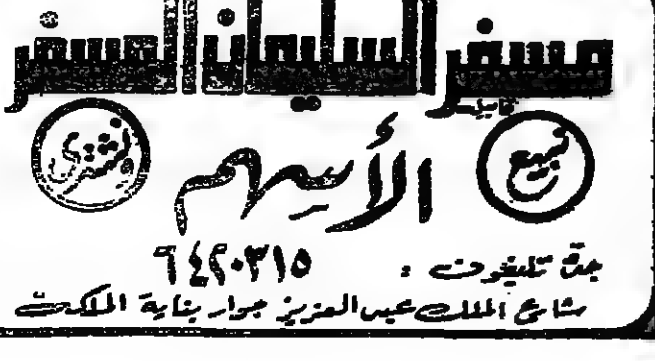 مسفر السليمان المسفر
نبيع
الأسهم
نشتري
جدة تليفون : ٦٤٢٠٣١٥
شارع الملك عبدالعزيز جوار بناية الملكة